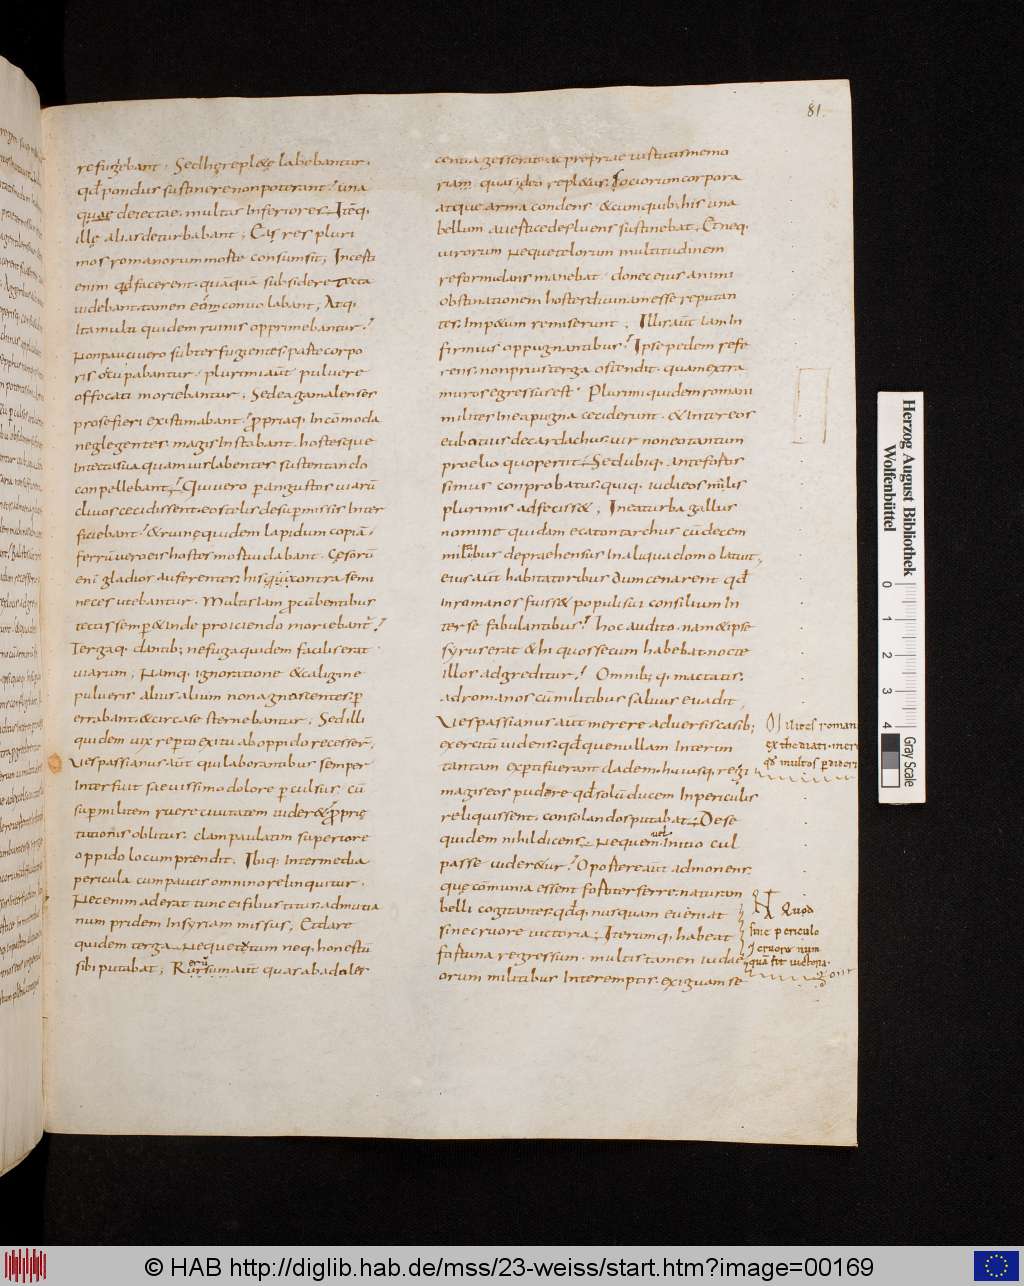 81.
refugebant. Sed hę replętę labebantur.
qđ pondus sustinere non poterant? una
quae deiectae. multas inferiores. Itēq.
illę alias deturbabant; Eaș res pluri
mos romanorum morte consumsit; Incerti
enim qđ facerent. quāquā subsidere tecta
videbant. tamen eōm convolabant; Atq.
ita multi quidem ruinis opprimebantur?
Non pauci vero subterfugientes parte corpo
ris
plurimi aūt pulvere
offocati moriebantur; Sed ea gamalenses
pro se fieri existimabant? ppriaq. incōmoda
neglegentes. magis instabant. hostesque
in tecta sua quamvis labentes sustentando
conpellebant; Qui vero p angustos viarū
clivos cecidissent. eos telis desup missis inter
ficiebant? & ruine quidem lapidum copiā.
ferrū vero eis hostes mortui dabant. Cęsorū
enī gladios auferentes. his contra semi
neces utebantur. Multis iam pcūbentibus
tectis semp & inde proiciendo moriebant?
Tergaq. dantib; ne fuga quidem facilis erat
viarum; Namq. ignoratione & caligine
pulveris alius alium non agnoscentes. p
errabant. & circa se sternebantur. Sed illi
quidem vix repto exitu ab oppido recesser̄.
Vespassianus aūt qui laborantibus semper
interfuit saevissimo dolore pculsus. cū
sup militem ruere civitatem videret
oblitus. clam paulatim superiore
oppido locum prendit. Ibiq. in termedia
pericula cum paucis omnino relinquitur.
Nec enim aderat tunc ei filius titus. ad mutia
num pridem in syriam missus; Et dare
quidem terga. neque tutum neq. honestū
sibi putabat; Rursum aūt quas ab adoles
centia gesserat. ac propriae virtutis memo
riam. quasi deo repletus. Sociorum corpora
atque arma condens. & cumquib; his una
bellum a vertice defluens sustinebat. Et neq.
virorum neque telorum multitudinem
reformidans manebat. donec eius animi
obstinationem hostes divinam esse reputan
tes. impetum remiserunt; Illis aūt iam in
firmius oppugnantibus? Ipse pedem refe
rens. non prius terga ostendit. quam extra
muros egressus est. Plurimi quidem romani
milites in ea pugna ceciderunt. & inter eos
ebutius decardachus. vir non eo tantum
proelio quo periit. Sed ubiq. ante fortis
simus conprobatus. quiq. iudaeos multis
plurimis adfecisset; In ea turba gallus
nomine quidam ecatontarchus cū decem
militibus depraehensus in aliqua domo latuit,
eius aūt habitatoribus dum cenarent qđ
in romanos fuisset populi sui consilium in
ter se fabulantibus? hoc audito. nam & ipse
syrus erat & hi quos secum habebat. nocte
illos adgreditur? Omnib; q. mactatis.
ad romanos cū militibus salvus evadit;
Vespassianus aūt merere adversis casib;
exercitū videns. qđ que nullam interim
tantam experti fuerant cladem. huiusq. rei
magis eos pudere qđ solū ducem in periculis
reliquissent. consolandos putabat. De se
quidem nihil dicens. Ne quem vel initio cul
passe videretur? Oportere aūt admonens.
que cōmunia essent fortiter ferre. naturam
belli cogitantes. qđq. nusquam eveniat
sine cruore victoria; Iterumq. habeat
fortuna regressum. multis tamen iudae
orum milibus interemptis. exiguam se
Milites roman
qđ multos
Quod
sine periculo
& cruore num
quā fit victoria.
Herzog August Bibliothek
Wolfenbüttel
0
1
2
3
4
Gray Scale
© HAB http://diglib.hab.de/mss/23-weiss/start.htm?image=00169